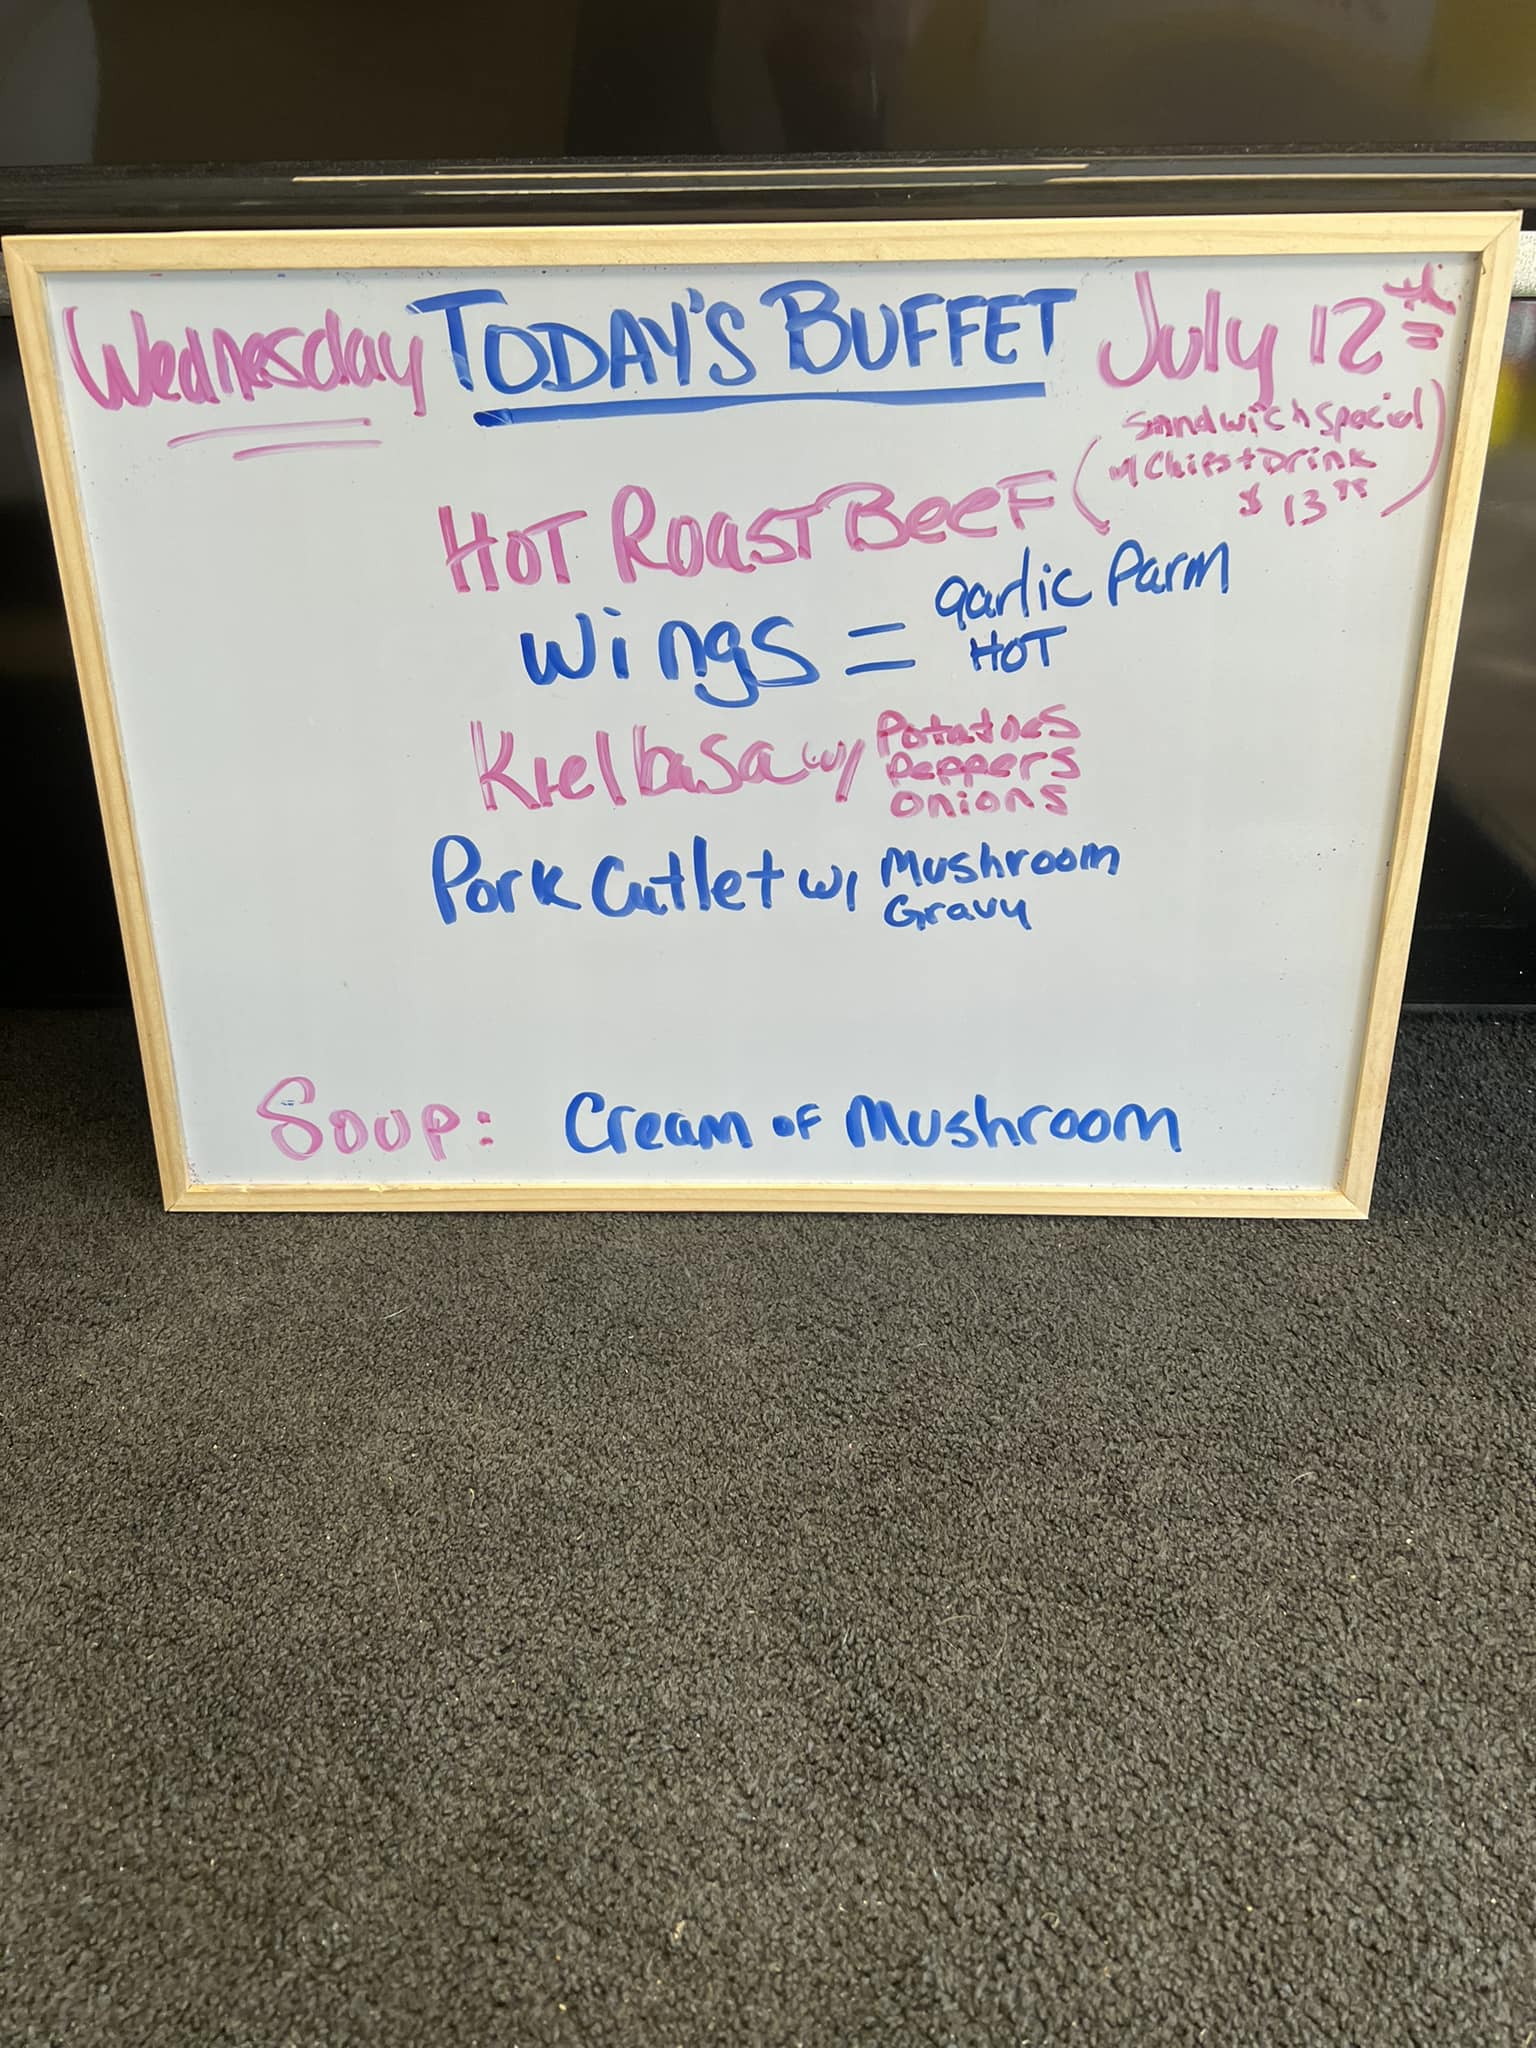 Wednesday TODAY'S BUFFET July 12th
HOT ROAST BEEF (Sandwich Special
w/ Chips + Drink
$ 13
Wings = garlic Parm
HOT
Kielbasa w/ Potatoes
Peppers
Onions
Pork Cutlet w/ Mushroom
Gravy
Soup: Cream of Mushroom